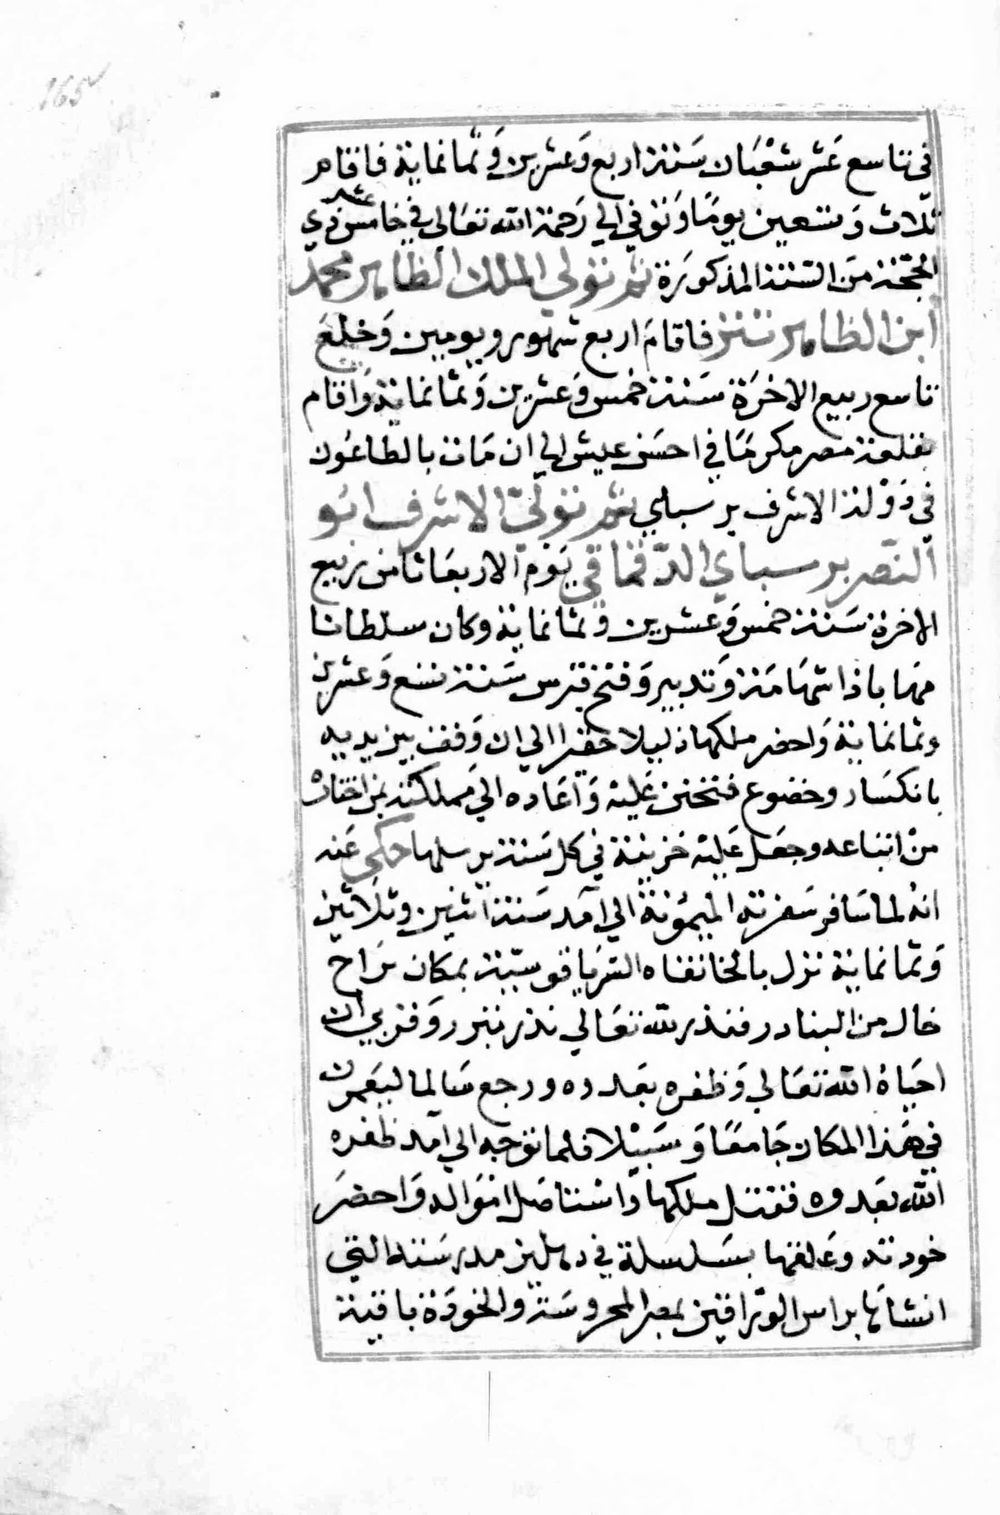 165
في تاسع عَشر شعْبَان سَنة اربع وَعشرين وَثمانماية فاقام
ثلاث وَتسعين يومًا وَتوفي الي رَحمة الله تعَالي في خامس عشر ذي
الحجّة مِن السّنة المذكورَة ثم تولي الملك الظاهر محمد
ابن الظاهر ططر فاقامَ اربع شهور ويومين وَخلعَ
تاسع ربيع الاخرَة سَنة خمس وَعشرين وَثمانماية وَاقام
بقلعة مصر مكرمًا في احسَن عيش الي ان مَات بالطاعُون
في دَوْلة الاشرف برسباي ثم تولي الاشرف ابُو
النّصر برسباي الدّقماقي يَوْم الاربعَا ثامن ربيع
الاخرة سَنة خمس وَعشرين وَثمانماية وكان سلطانا
مهابا ذا شهَامَة وَتدبير وَفتح قبرس سَنة تسع وَعشرين
وثمانماية وَاحضر ملكها ذليلا حقيرا الي ان وَقف بين يديه
بانكسَار وخضوع فتحنن عَليْه وَاعَاده اليَ مملكته بمن اختارْ
منْ اتباعه وجعَل عَليْه جزية في كل سَنة يرسلها حكي عَنه
انهُ لما سَافر سَفرته الميمُونة الي آمد سَنة اثنين وثلاثين
وَثمانماية نزل بالخانقاه السّرياقوسيّة بمكان بَراح
خال من البنا درفنذر لله تعَالي نذر تبرر وَقربي ان
احيَاهُ الله تعَالي وَظفره بعَدوه ورجع سَالما ليعَمرن
في هَذا المكان جَامعًا وَسَبيْلا فلما توَجه الي آمد ظفره
الله بعَدوه فقتل ملكها وَاسْتاصَل امْوَاله وَاحضرَ
خودته وعَلقهَا بسَلسلة في دهليز مدرسَته التي
انشاهَا براس الورّاقين بمصر المحروسَة والخودَة باقية